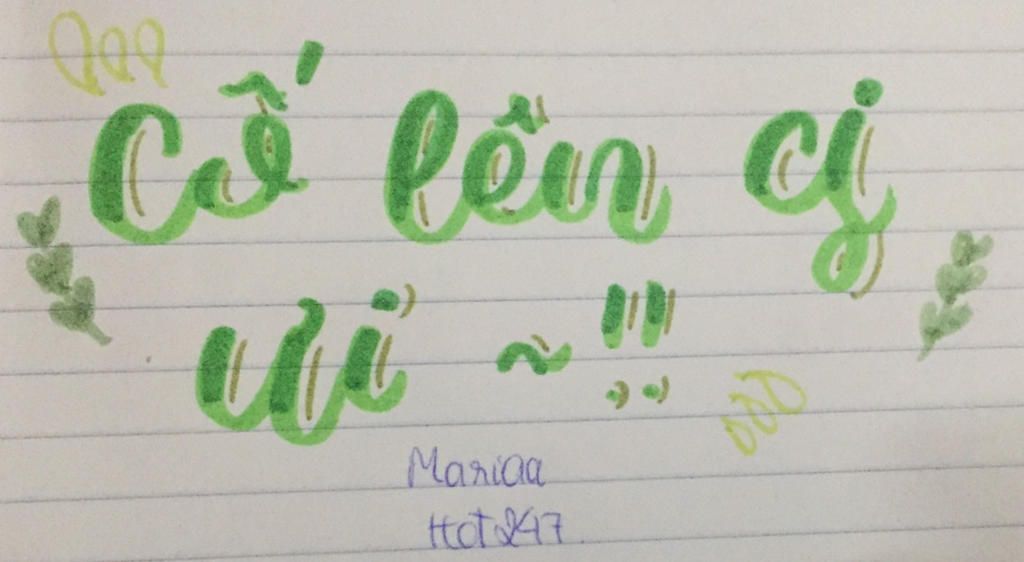 Cố lên cj
ưi ~ !!
Mariaa
Hot247